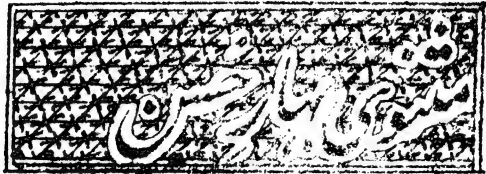 مثنوی بہار حُسن